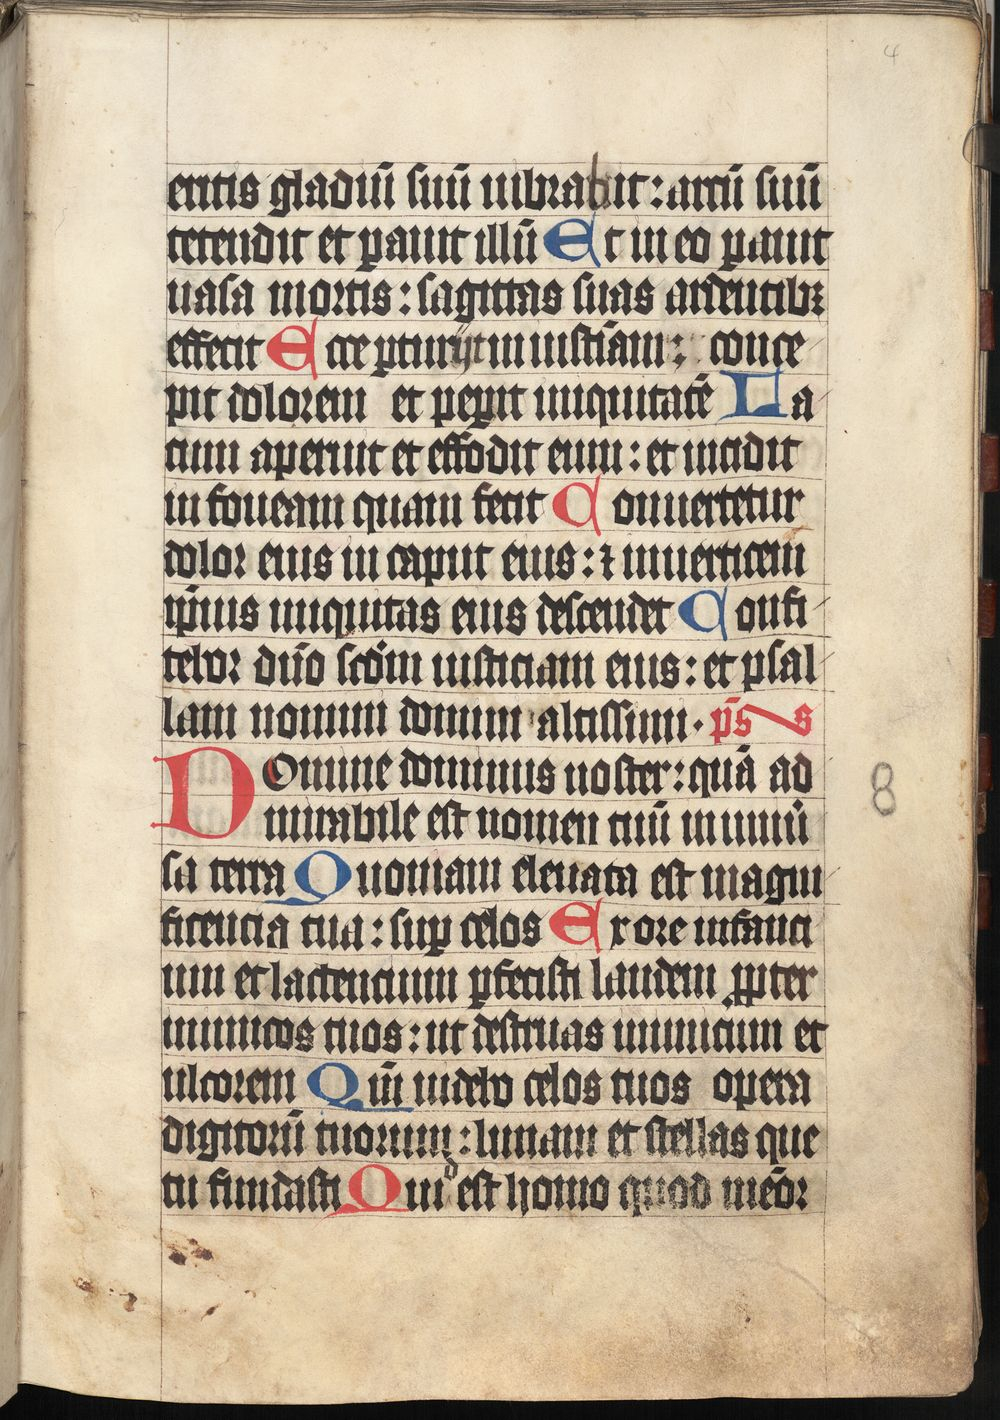 4
eritis gladiū suū uibrabit : arcū suū
tetendit et parauit illū Et in eo parauit
uasa mortis : sagittas suas ardentibꝫ
effecit Ecce ꝑturijt iniustic̄iam : conce
pit dolorem et peꝑit iniquitatē La
cum aperuit et effodit eum : et incidit
in foueam quam fecit Conuertetur
dolor eius in caput eius : ⁊ inuerticem
ip̄ius iniquitas eius descendet Confi
tebor dn̄o scd̄m iusticiam eius : et psal
lam nomini domini altissimi . p̄s s
Domine dominus noster : quā ad
mirabile est nomen tuū in uniū
sa terra Quoniam eleuata est magni
ficencia tua : suꝑ celos Ex ore infanci
um et lactencium ꝑfecisti laudem ꝓpter
inimicos tuos : ut destruas inimicum et
ultorem Qm̄ uidebo celos tuos opera
digitorū tuorum : lunam et stellas que
tu fundasti Quid est homo quod meōr
8